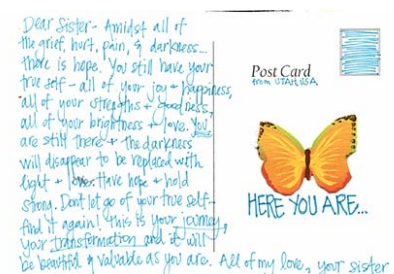 Dear Sister - Amidst all of
the grief, hurt, pain, & darkness...
there is hope. You still have your
true self - all of your joy + happiness,
all of your strengths + goodness,
all of your brightness + love. You
are still there + the darkness
will disappear to be replaced with
light + love. Have hope + hold
strong. Don't let go of your true self-
find it again! This is your journey,
your transformation and it will
be beautiful & valuable as you are. All of my love, your sister
Post Card
from UTAH, USA
HERE YOU ARE...